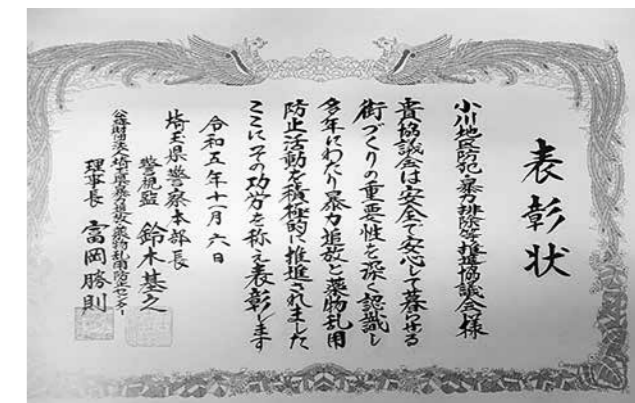 表彰状
小川地区防犯・暴力排除等推進協議会様
貴協議会は安全で安心して暮らせる
街づくりの重要性を深く認識し
多年にわたり暴力追放と薬物乱用
防止活動を積極的に推進されました
ここにその功労を称え表彰します
令和五年十一月六日
埼玉県警察本部長
警視監 鈴木基之
公益財団法人埼玉県暴力追放・薬物乱用防止センター
理事長 富岡勝則